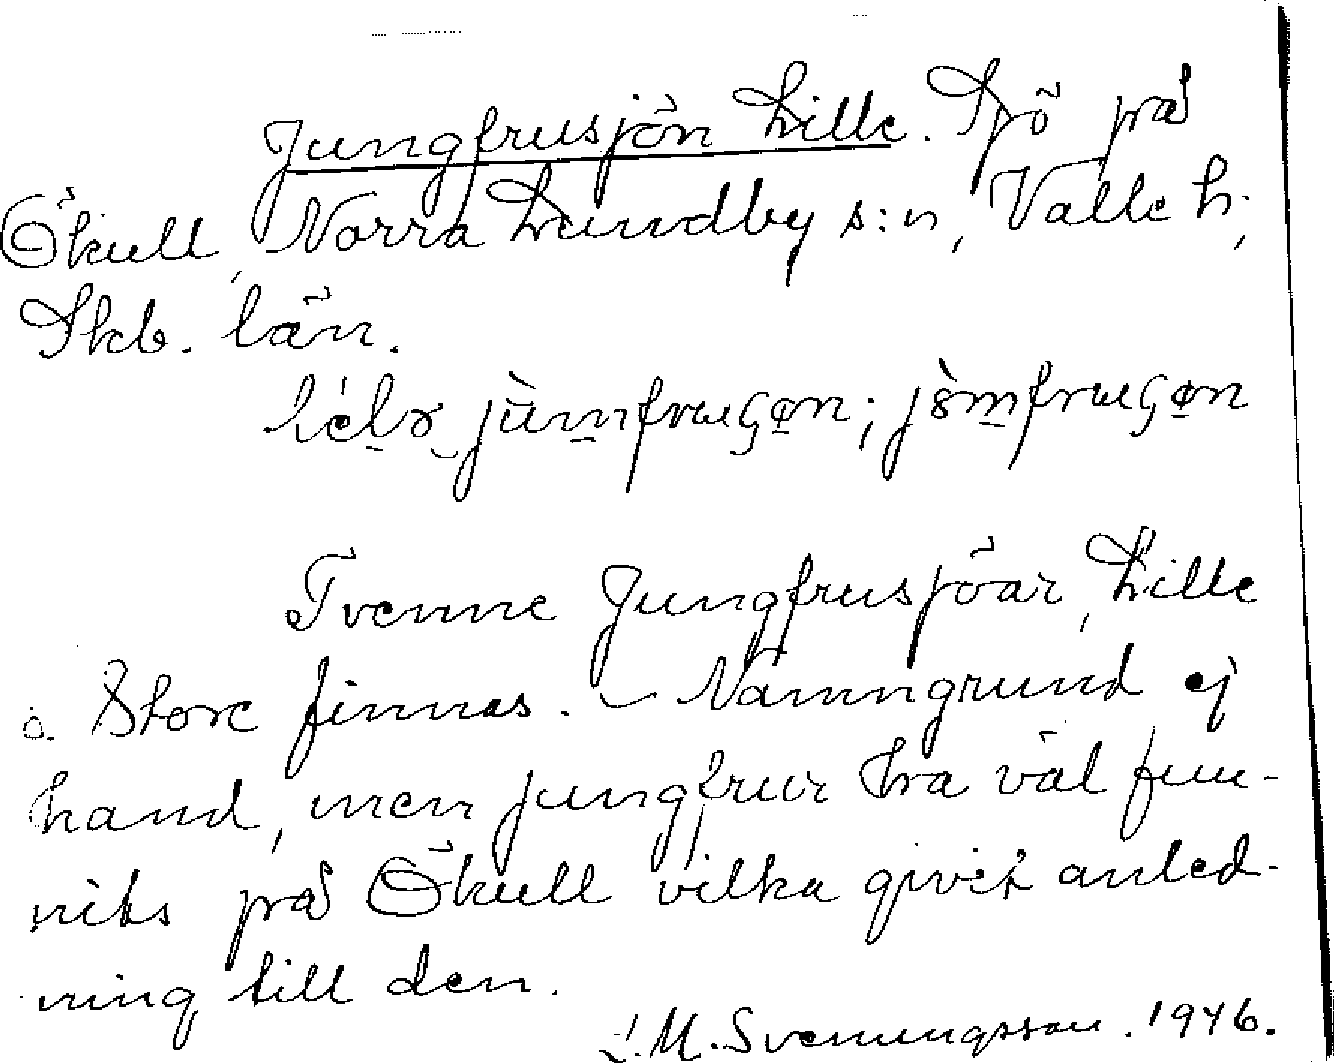 Jungfrusjön Lille. Sjö på
Ökull, Norra Lundby s:n, Valle h;
Skb. län.
Tvenne Jungfrusjöar, Lille
o. Store finnas. – Namngrund ej
känd, men jungfrur ha väl fun-
nits på Ökull vilka givit anled-
ning till den.
L.M. Svenungsson. 1946.